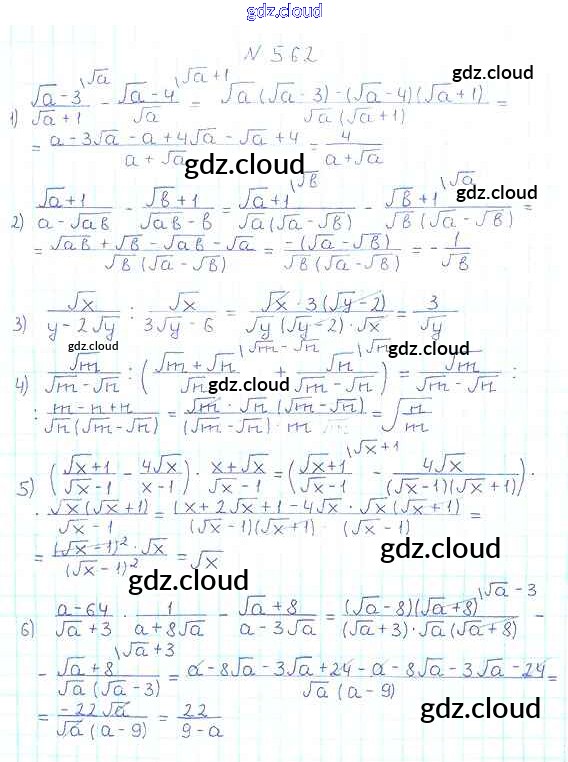 gdz.cloud
N 562
1) (√a-3)/(√a+1) \√a - (√a-4)/√a \√a+1 = (√a(√a-3)-(√a-4)(√a+1))/(√a(√a+1)) =
= (a-3√a-a+4√a-√a+4)/(a+√a) = 4/(a+√a)
gdz.cloud
gdz.cloud
2) (√a+1)/(a-√aв) - (√в+1)/(√aв-в) = (√a+1)/(√a(√a-√в)) \√в - (√в+1)/(√в(√a-√в)) \√a =
= (√aв+√в-√aв-√a)/(√в(√a-√в)) = (-(√a-√в))/(√в(√a-√в)) = -1/√в
gdz.cloud
3) √x/(y-2√y) : √x/(3√y-6) = (√x·3(√y-2))/(√y(√y-2)·√x) = 3/√y
gdz.cloud
gdz.cloud
4) √m/(√m-√n) : ((√m+√n)/√n \√m-√n + √n/(√m-√n) \√n) = √m/(√m-√n) :
gdz.cloud
: (m-n+n)/(√n(√m-√n)) = (√m·√n(√m-√n))/((√m-√n)·m) = √(n/m)
5) ((√x+1)/(√x-1) - 4√x/(x-1)) · (x+√x)/(√x-1) = ((√x+1)/(√x-1) \√x+1 - 4√x/((√x-1)(√x+1))) ·
· (√x(√x+1))/(√x-1) = ((x+2√x+1-4√x·√x(√x+1))/((√x-1)(√x+1)·(√x-1)) =
= ((√x-1)²·√x)/(√x-1)² = √x
gdz.cloud
gdz.cloud
6) (a-64)/(√a+3) · 1/(a+8√a) - (√a+8)/(a-3√a) = ((√a-8)(√a+8))/((√a+3)·√a(√a+8)) \√a-3 -
- (√a+8)/(√a(√a-3)) \√a+3 = (a-8√a-3√a+24-a-8√a-3√a-24)/(√a(a-9)) =
= (-22√a)/(√a(a-9)) = 22/(9-a)
gdz.cloud
gdz.cloud